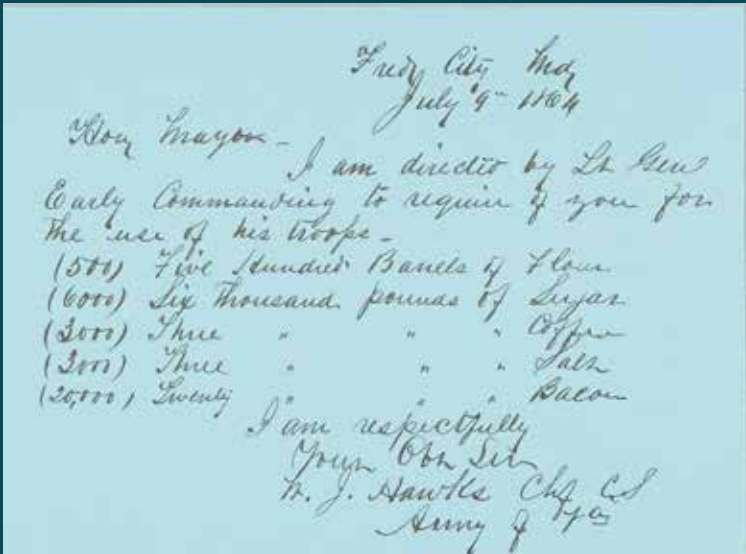 Fredk City Md
July 9th 1864
Hon Mayor -
I am directed by Lt Genl
Early Commanding to require of you for
the use of his troops -
(500) Five Hundred Barrels of Flour
(6000) Six Thousand pounds of Sugar
(3000) Three " " " Coffee
(3000) Three " " " Salt
(20,000) Twenty " " " Bacon
I am respectfully
Your Obt Svt
W. J. Hawks Chf CS
Army of Va